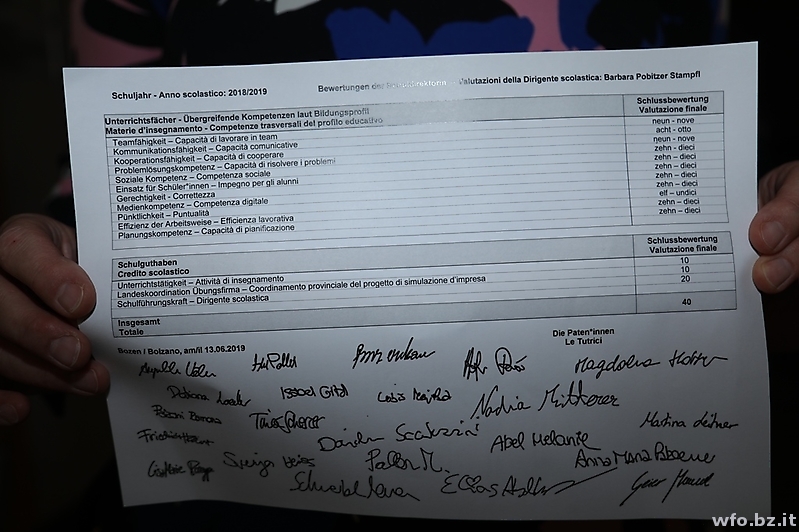 Schuljahr - Anno scolastico: 2018/2019
Bewertungen der Schuldirektorin Valutazioni della Dirigente scolastica: Barbara Pobitzer Stampfl
Unterrichtsfächer - Übergreifende Kompetenzen laut Bildungsprofil
Materie d'insegnamento - Competenze trasversali del profilo educativo
Schlussbewertung
Valutazione finale
Teamfähigkeit – Capacità di lavorare in team neun - nove
Kommunikationsfähigkeit – Capacità comunicative acht - otto
Kooperationsfähigkeit – Capacità di cooperare neun - nove
Problemlösungskompetenz – Capacità di risolvere i problemi zehn - dieci
Soziale Kompetenz – Competenza sociale zehn – dieci
Einsatz für Schüler*innen – Impegno per gli alunni zehn – dieci
Gerechtigkeit - Correttezza zehn – dieci
Medienkompetenz – Competenza digitale zehn – dieci
Pünktlichkeit – Puntualità elf – undici
Effizienz der Arbeitsweise – Efficienza lavorativa zehn – dieci
Planungskompetenz – Capacità di pianificazione zehn – dieci
Schulguthaben
Credito scolastico
Schlussbewertung
Valutazione finale
Unterrichtstätigkeit – Attività di insegnamento 10
Landeskoordination Übungsfirma – Coordinamento provinciale del progetto di simulazione d'impresa 10
Schulführungskraft – Dirigente scolastica 20
Insgesamt
Totale 40
Bozen / Bolzano, am/il 13.06.2019
Die Paten*innen
Le Tutrici
Magdalena
Nadia Mitterer
Martina
Abel Melanie
Anna Maria
Paller M.
Elias
wfo.bz.it